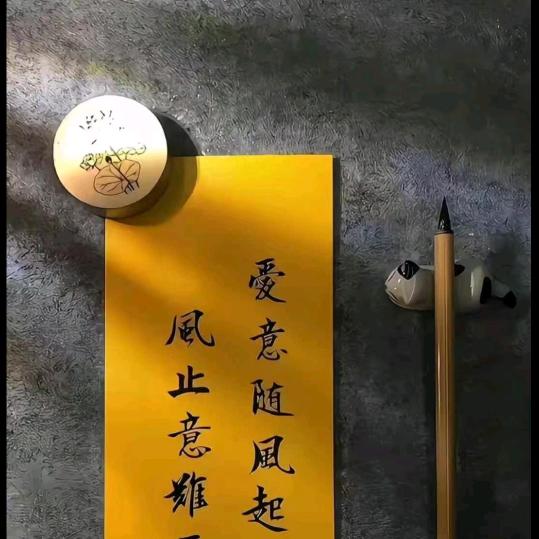 愛意随風起
風止意難